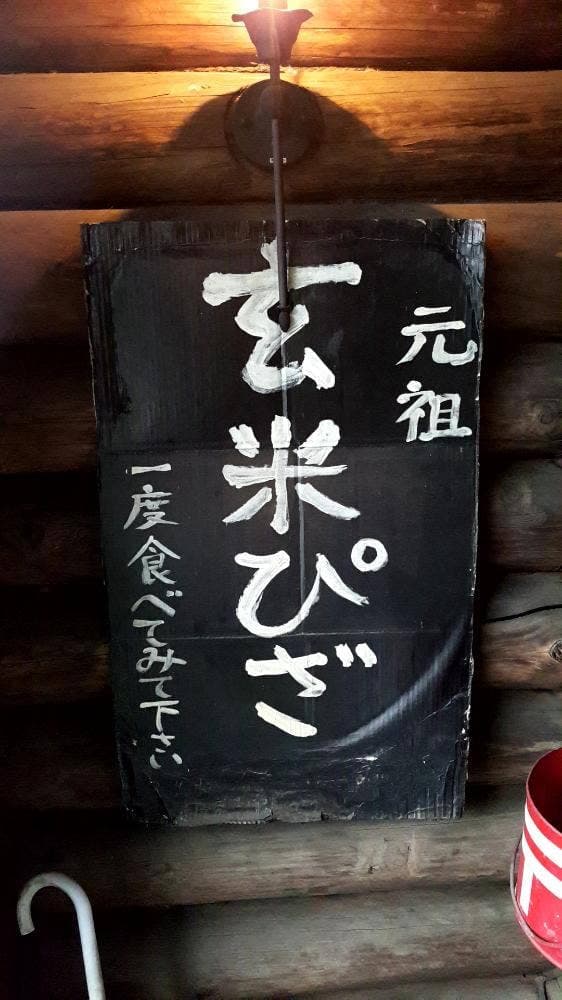 元祖
玄米ぴざ
一度食べてみて下さい